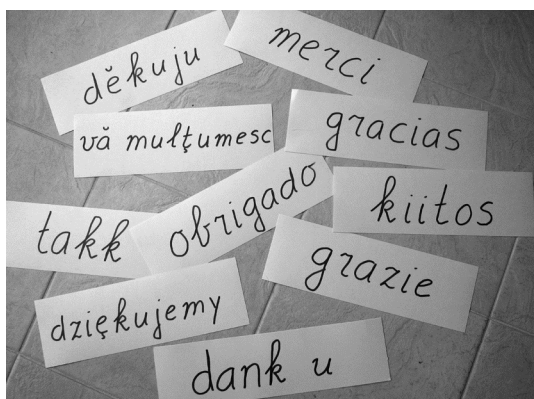 děkuju
merci
vă mulţumesc
gracias
obrigado
kiitos
takk
grazie
dziękujemy
dank u